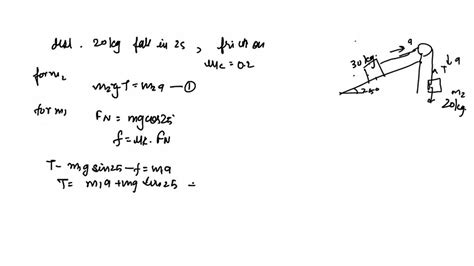 dist. 20kg fall in 2s, friction
μk = 0.2
for m2
m2g T = m2a — ①
for m1
FN = mg cos25
f = μk. FN
T - m1g sin25 - f = m1a
T = m1a + mg sin25 =
30kg
a
25°
T ↓a
m2
20kg